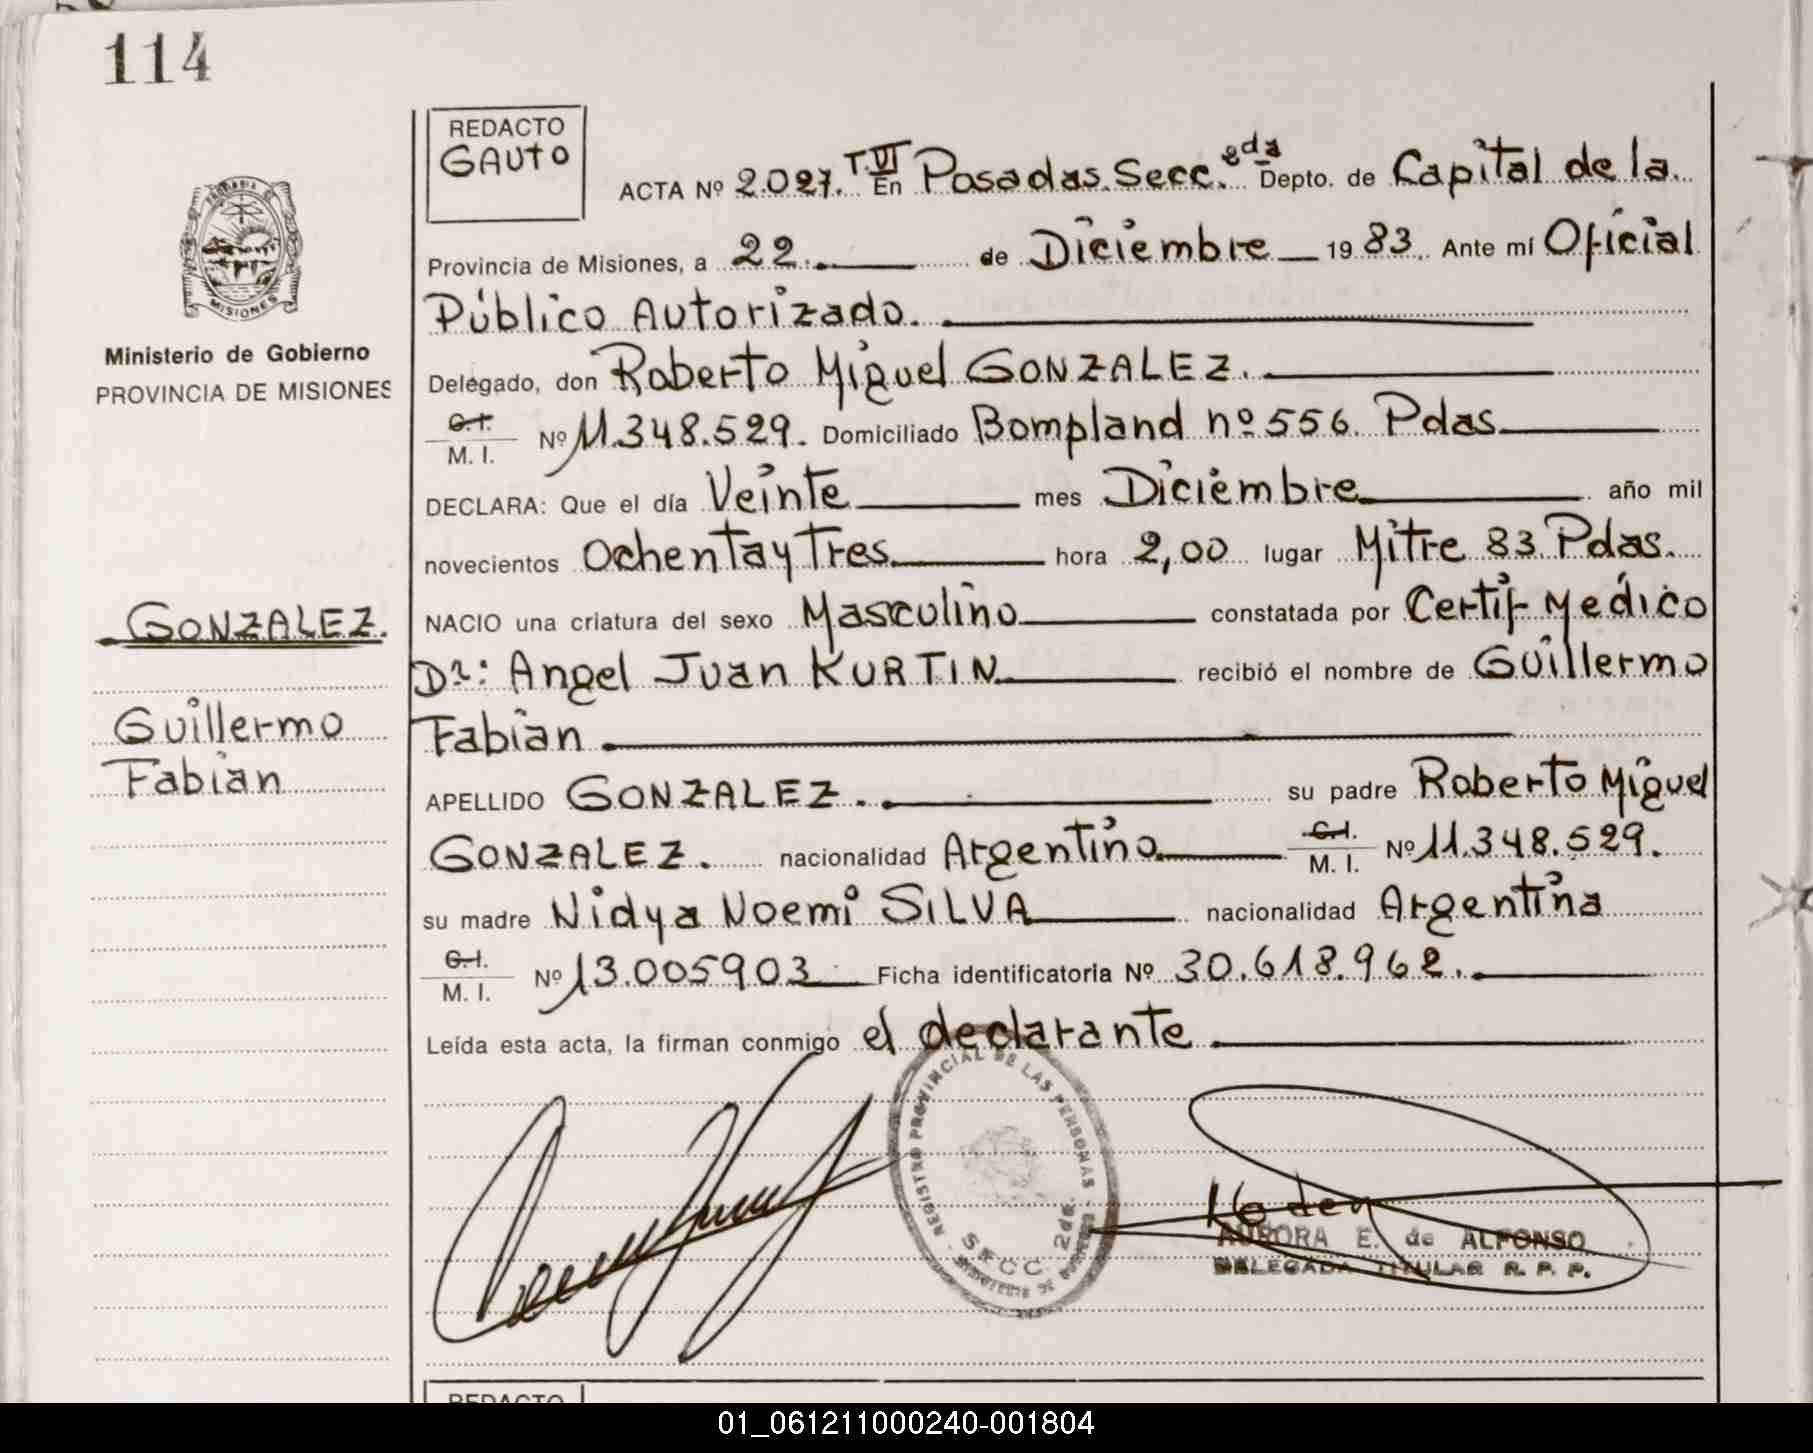 114
REDACTO
GAUTO
ACTA Nº 2.027. T.VI En Posadas. Secc. eda Depto. de Capital de la
Provincia de Misiones, a 22. de Diciembre 19 83. Ante mí Oficial
Público Autorizado.
Delegado, don Roberto Miguel GONZALEZ.
C.I. M. I. Nº 11.348.529. Domiciliado Bompland nº 556. Pdas
DECLARA: Que el día Veinte mes Diciembre año mil
novecientos Ochenta y Tres hora 2,00 lugar Mitre 83 Pdas.
NACIO una criatura del sexo Masculino constatada por Certif Medico
Dr: Angel Juan KURTIN recibió el nombre de Guillermo
Fabian
APELLIDO GONZALEZ. su padre Roberto Miguel
GONZALEZ. nacionalidad Argentino C.I. M. I. Nº 11.348.529.
su madre Nidya Noemi SILVA nacionalidad Argentina
C.I. M. I. Nº 13.005903 Ficha identificatoria Nº 30.618.962.
Leída esta acta, la firman conmigo el declarante
MISIONES
Ministerio de Gobierno
PROVINCIA DE MISIONES
GONZALEZ.
Guillermo
Fabian
REGISTRO PROVINCIAL DE LAS PERSONAS
SECC. 2da.
AURORA E. de ALFONSO
DELEGADA TITULAR R. P. P.
REDACTO
01_061211000240-001804